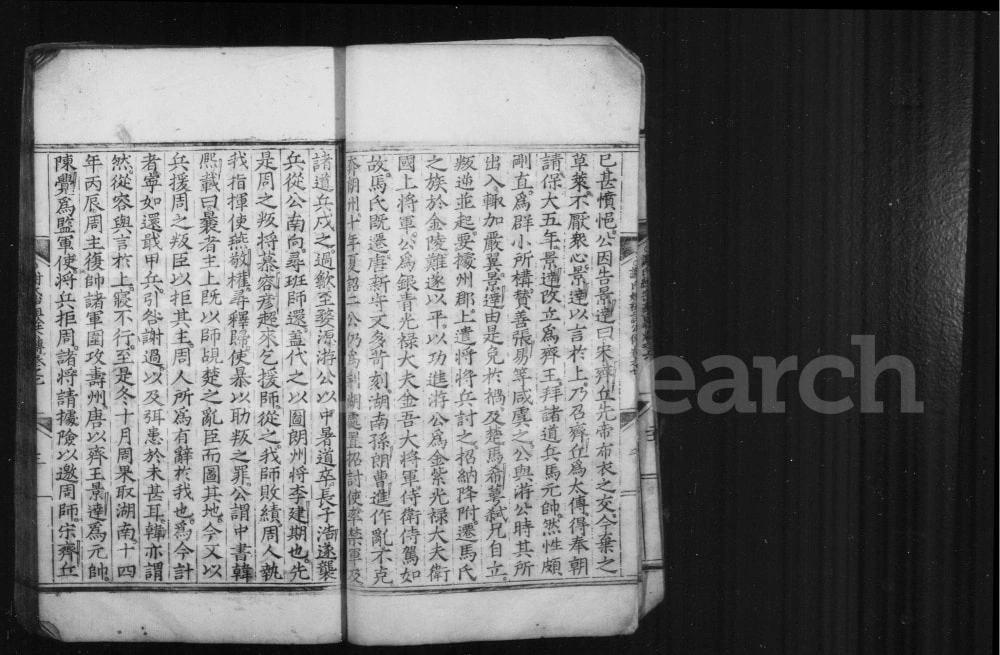 已甚憤悒公因告景達曰宋齊丘先帝布衣之交今棄之
草萊不厭衆心景達以言於上乃召齊丘爲太傅得奉朝
請保大五年景達改立爲齊王拜諸道兵馬元帥然性頗
剛直爲群小所構賛善張易等咸虞之公與游公時其所
出入輙加嚴翼景達由是免於禍及楚馬希萼弑兄自立
叛逆並起要擾州郡上遣將將兵討之招納降附遷馬氏
之族於金陵難遂以平以功進游公爲金紫光禄大夫衛
國上將軍公爲銀青光禄大夫金吾大將軍侍衛侍駕如
故馬氏既遷唐新守文多苛刻湖南孫朗曹進作亂不克
奔朗州十年夏詔二公仍爲制湖處置招討使率禁軍及
諸道兵戍之過歙至婺源游公以中暑道卒長子滔遂襲
兵從公南向尋班師還盖代之以圖朗州將李建期也先
是周之叛將慕容彥超來乞援師從之我師敗績周人執
我指揮使燕敬權尋釋歸使暴以助叛之罪公謂中書韓
熙載曰曩者主上旣以師覘楚之亂臣而圖其地今又以
兵援周之叛臣以拒其主周人所爲有辭於我也爲今計
者寧如還戢甲兵引咎謝過以及弭患於未甚耳韓亦謂
然從容與言於上寢不行至是冬十月周果取湖南十四
年丙辰周主復帥諸軍圍攻壽州唐以齊王景達爲元帥
陳覺爲監軍使將兵拒周諸將請據險以邀周師宋齊丘
Search